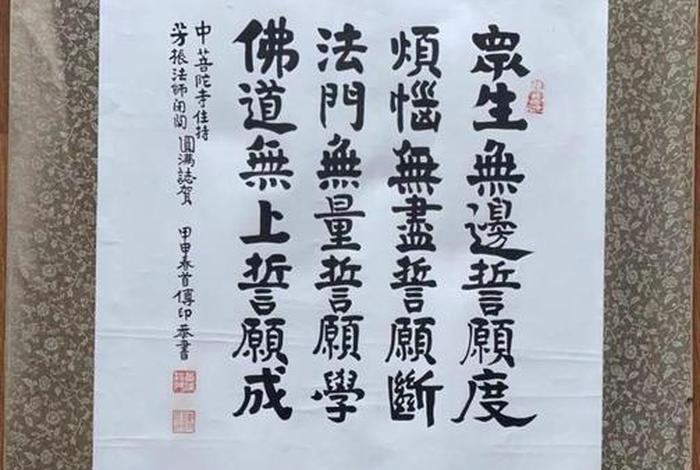 眾生無邊誓願度
煩惱無盡誓願斷
法門無量誓願學
佛道無上誓願成
中菩陀寺住持
芳振法師閉關圓滿誌賀
甲申春首傳印恭書